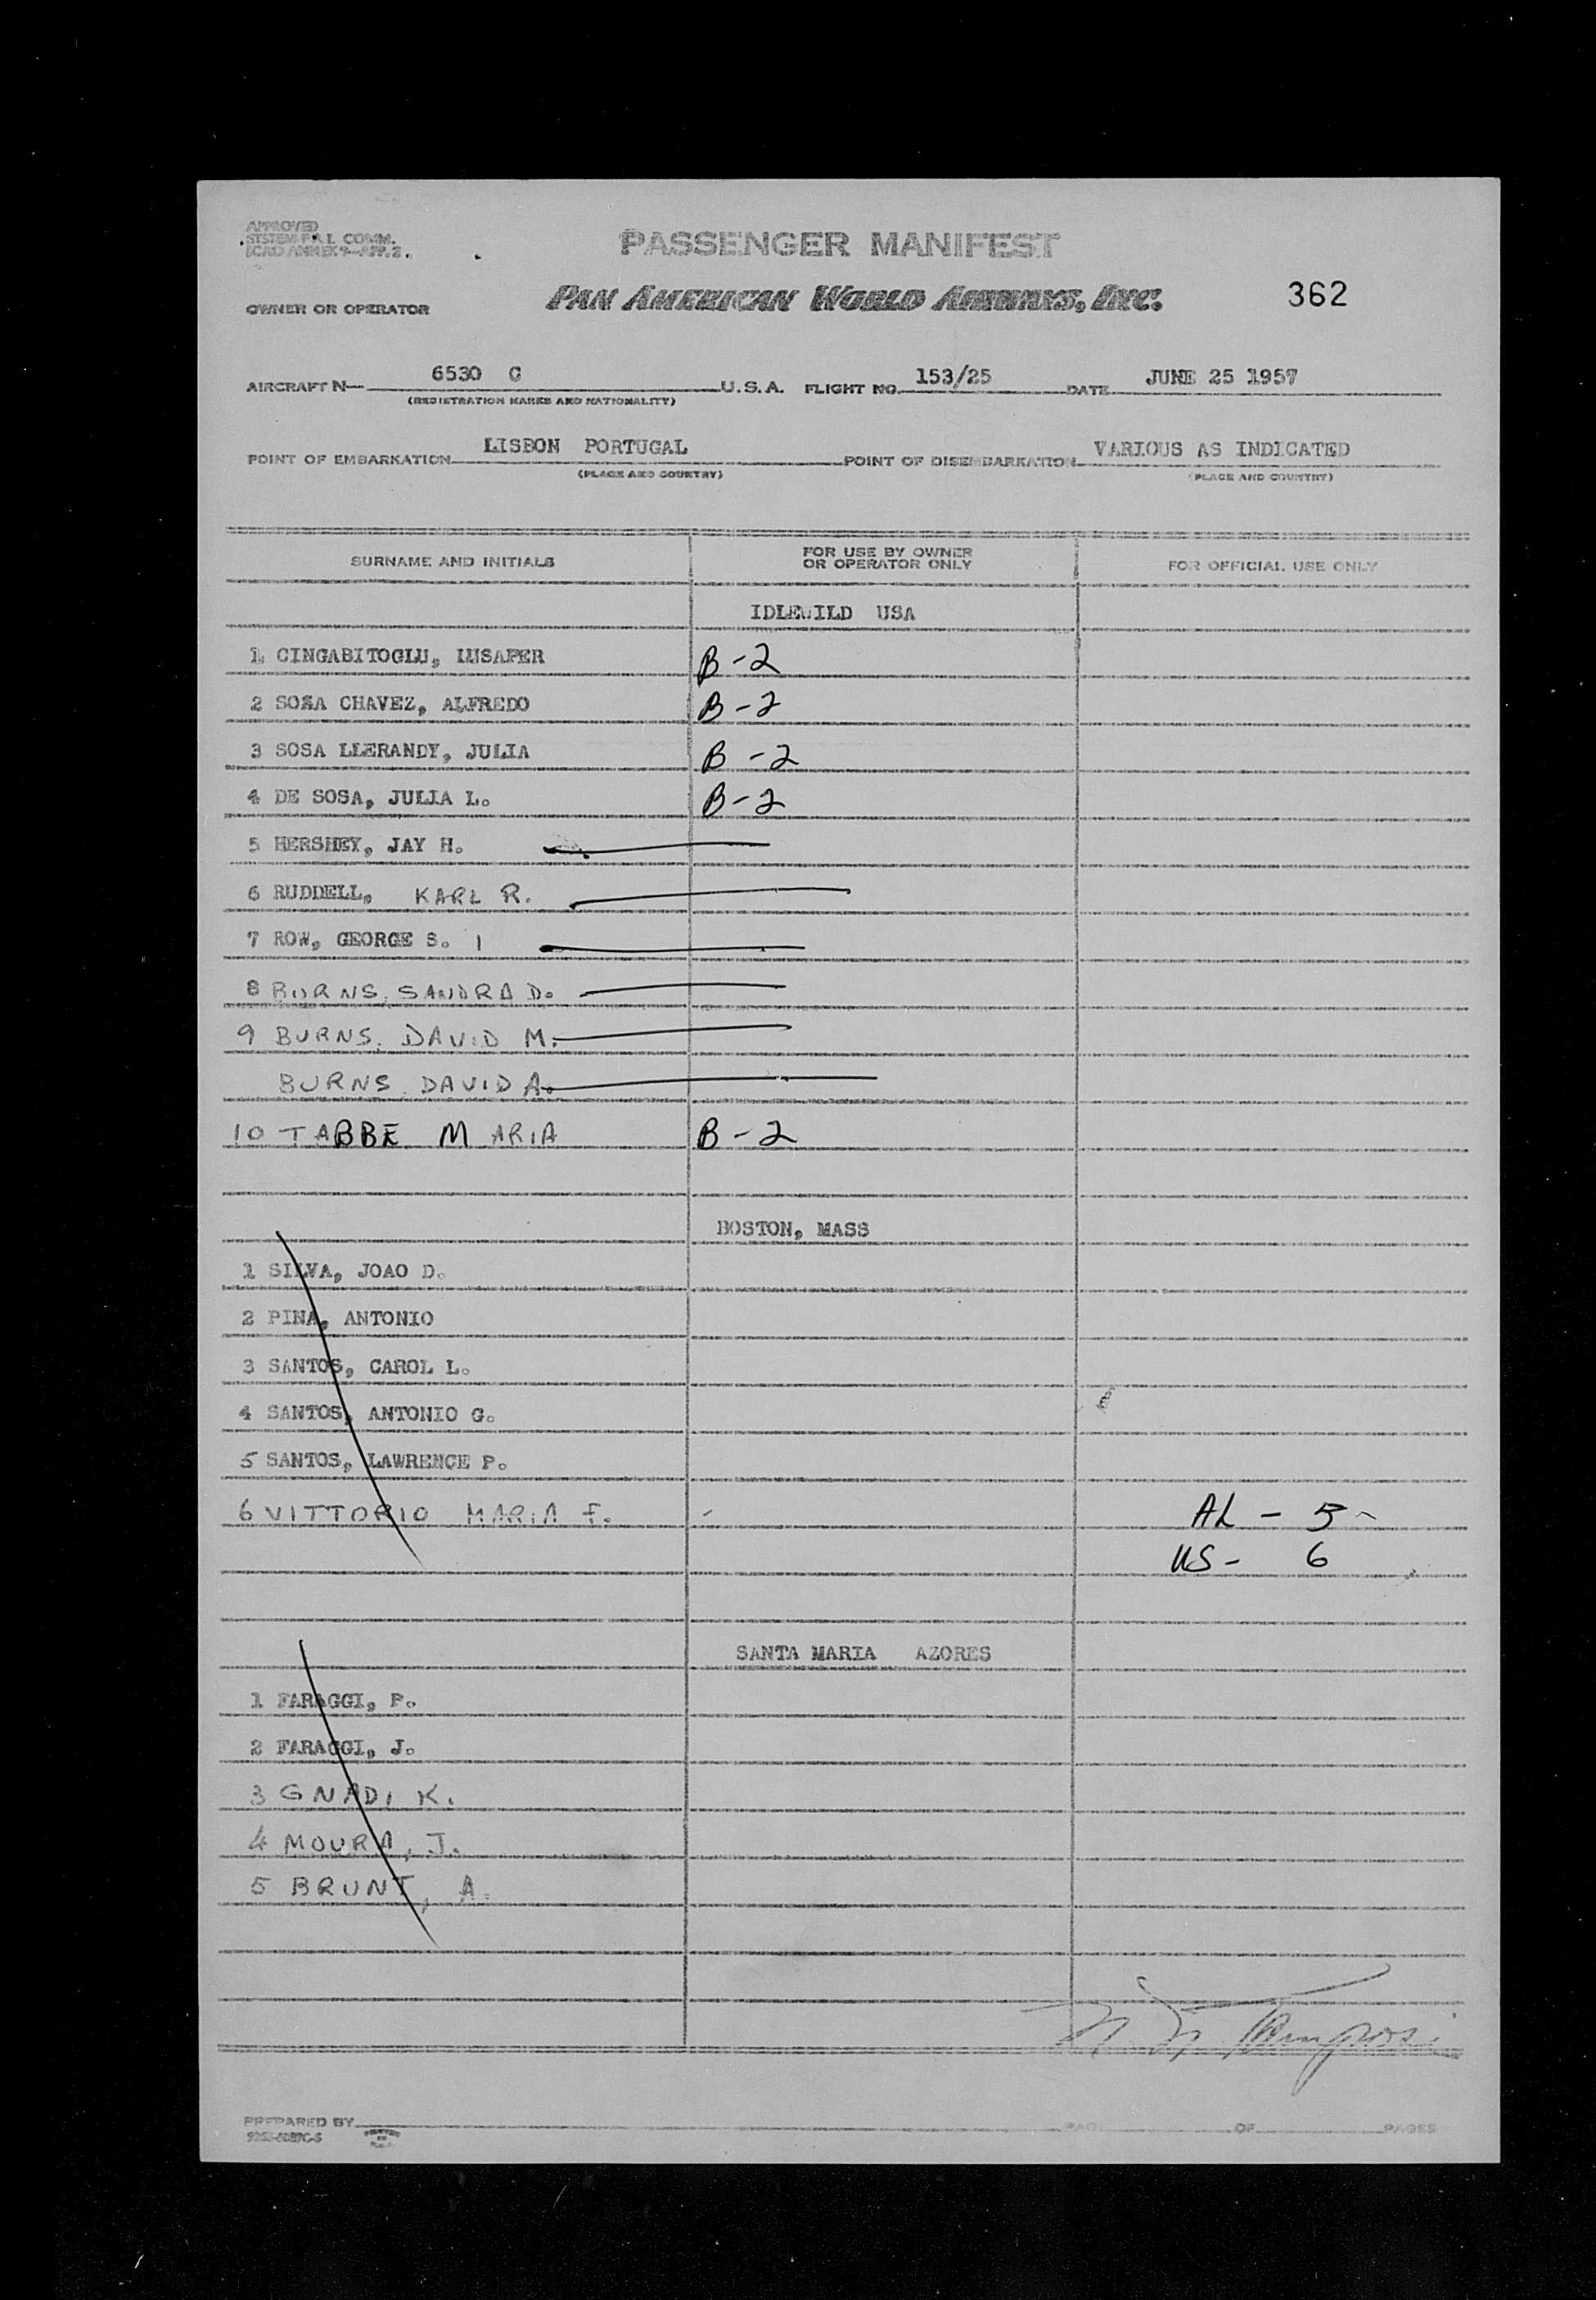 APPROVED
SYSTEM F.A.L COMM.
ICAO ANNEX 9—APP. 2.
PASSENGER MANIFEST
OWNER OR OPERATOR PAN AMERICAN WORLD AIRWAYS, INC. 362
AIRCRAFT N— 6530 C U.S.A. FLIGHT NO. 153/25 DATE JUNE 25 1957
(REGISTRATION MARKS AND NATIONALITY)
POINT OF EMBARKATION LISBON PORTUGAL POINT OF DISEMBARKATION VARIOUS AS INDICATED
(PLACE AND COUNTRY) (PLACE AND COUNTRY)
SURNAME AND INITIALS FOR USE BY OWNER OR OPERATOR ONLY FOR OFFICIAL USE ONLY
IDLEWILD USA
1. CINGABITOGLU, LUSAPER B-2
2 SOSA CHAVEZ, ALFREDO B-2
3 SOSA LLERANDY, JULIA B-2
4 DE SOSA, JULIA L. B-2
5 HERSHEY, JAY H.
6 RUDDELL, KARL R.
7 ROW, GEORGE S.
8 BURNS, SANDRA D.
9 BURNS. DAVID M.
BURNS. DAVID A.
10 TABBE MARIA B-2
BOSTON, MASS
1 SILVA, JOAO D.
2 PINA, ANTONIO
3 SANTOS, CAROL L.
4 SANTOS, ANTONIO G.
5 SANTOS, LAWRENCE P.
6 VITTORIO MARIA F. AL - 5-
US - 6
SANTA MARIA AZORES
1 FARAGGI, P.
2 FARAGGI, J.
3 GNADI K.
4 MOURA, J.
5 BRUNT, A.
PREPARED BY PAGE OF PAGES